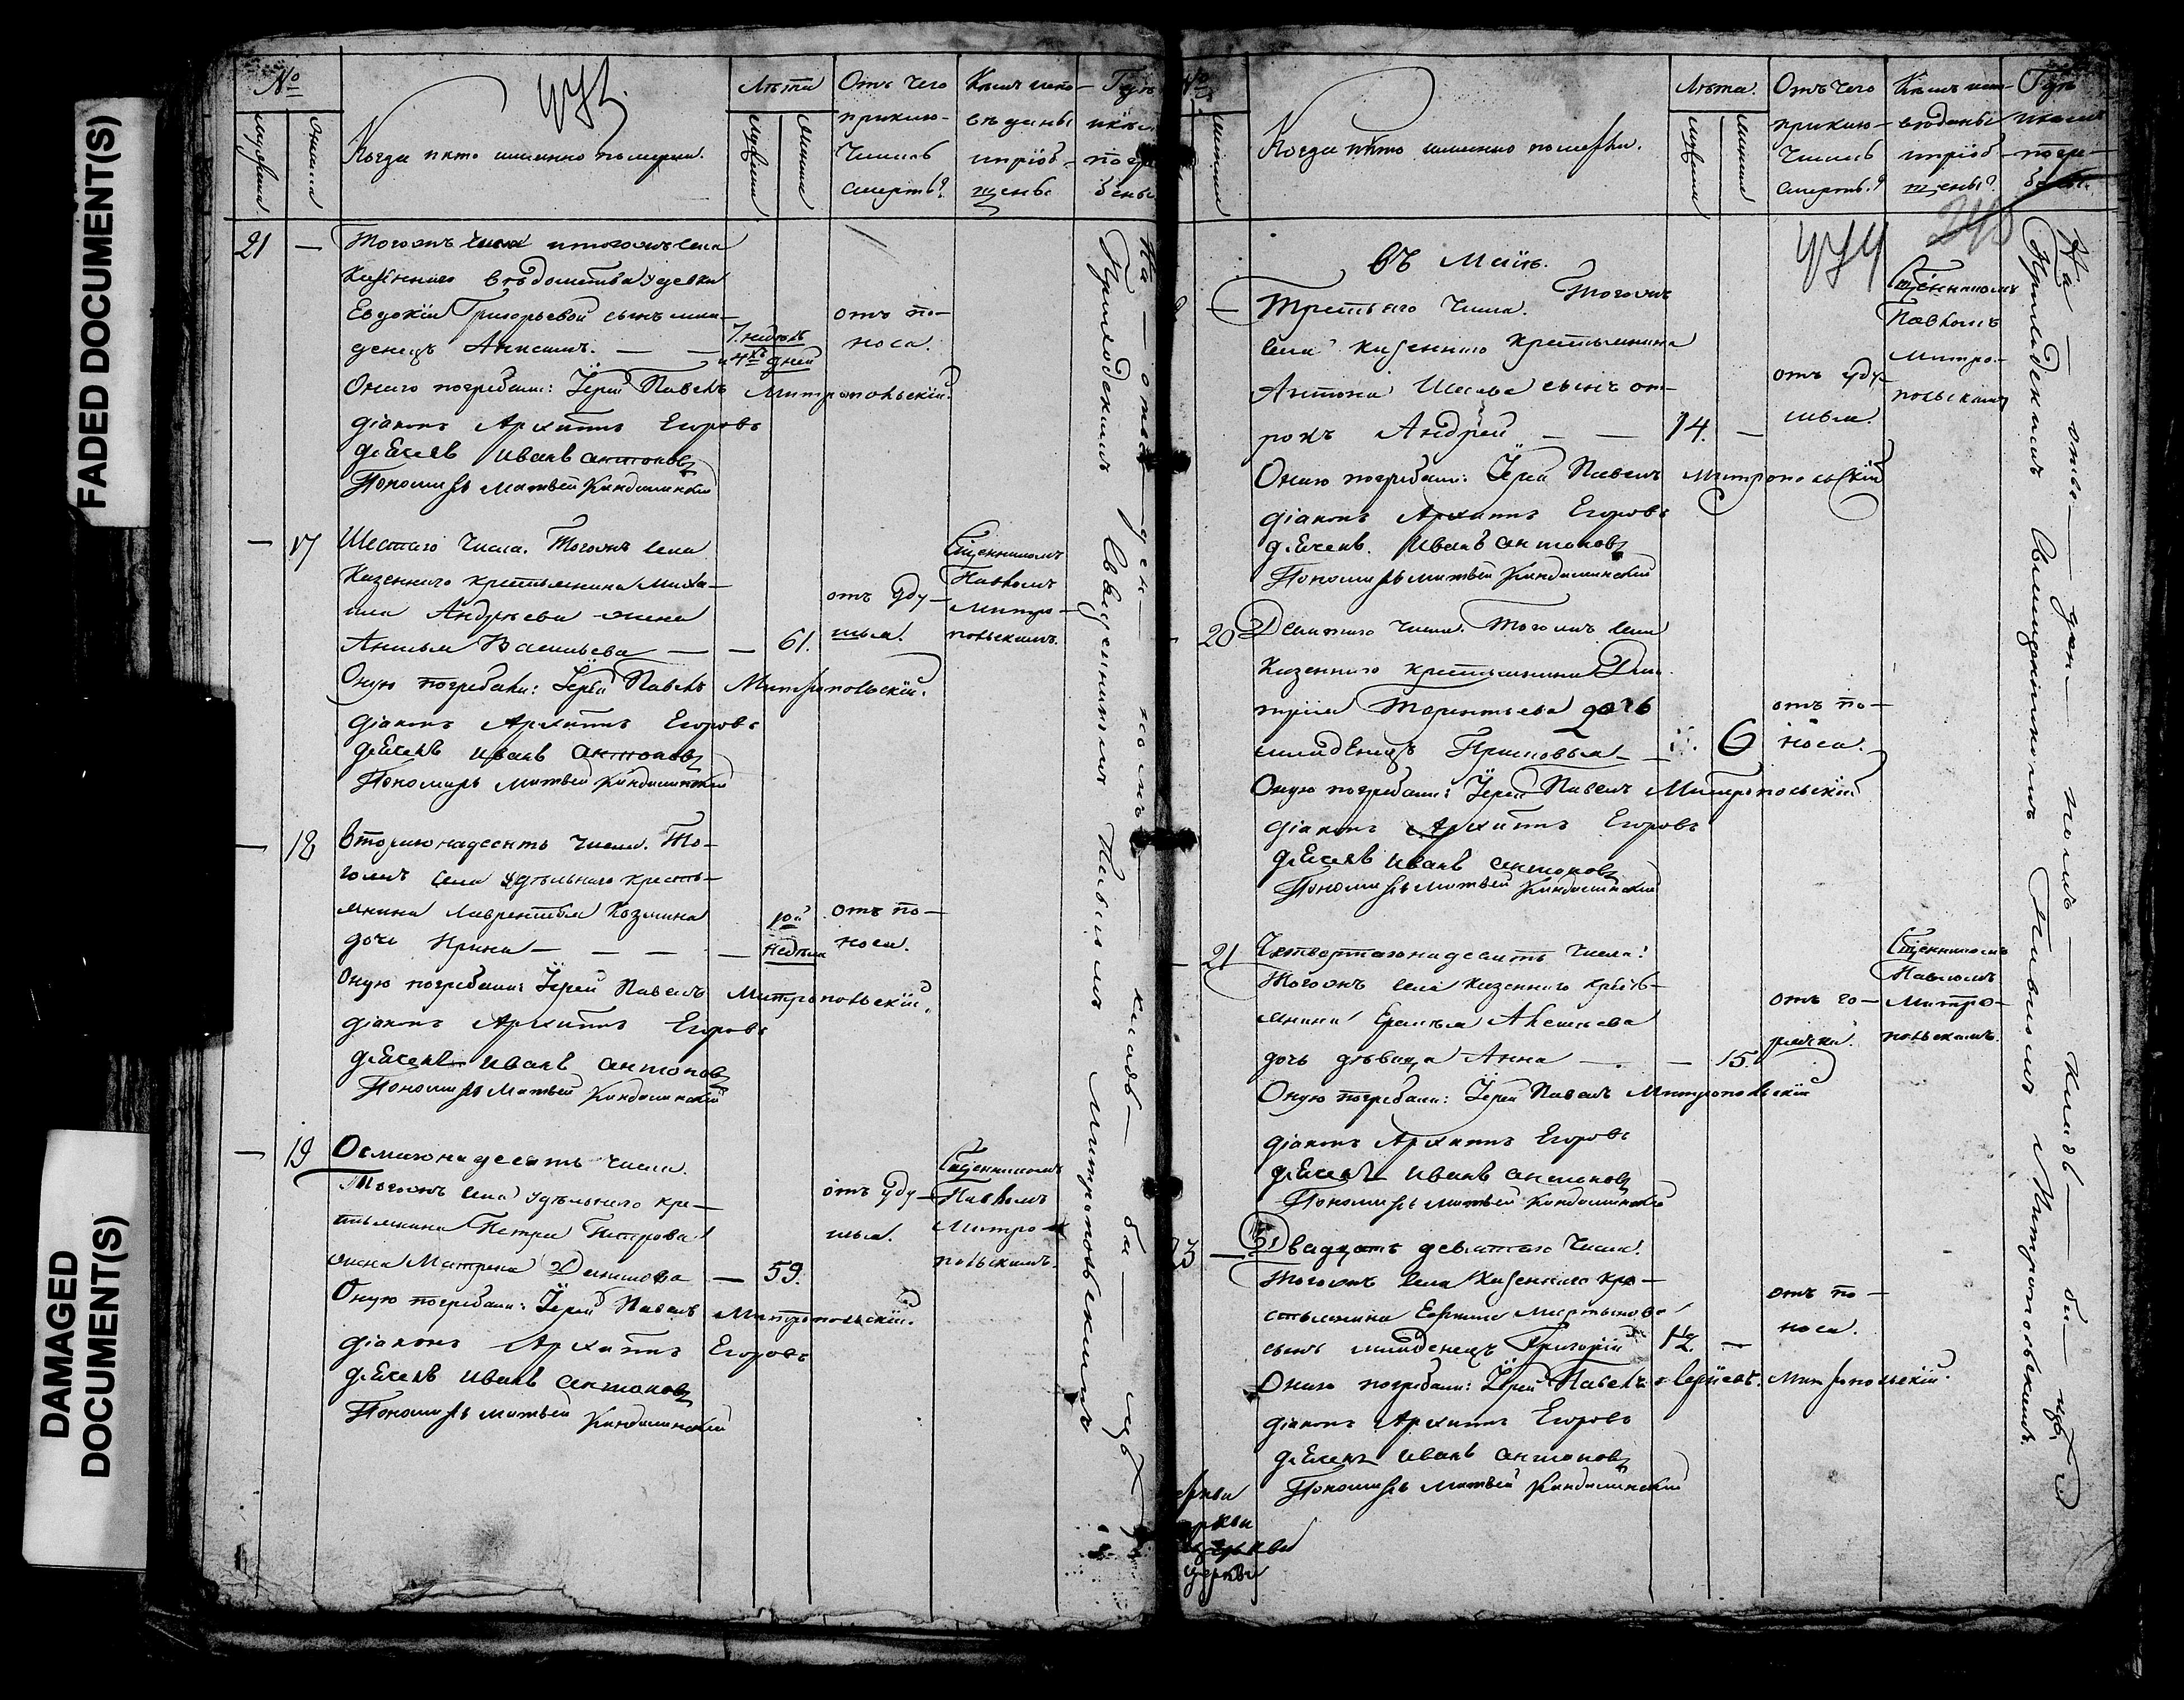 FADED DOCUMENT(S)
DAMAGED
DOCUMENT(S)
№
Мужеска.
Женска
Когда и кто именно померли.
Лѣта
Мужеска
Женска
Отъ чего
приклю-
чилась
смерть?
Кѣмъ испо-
вѣданы
и пріоб-
щены
21 —
Тогожъ числа и тогожъ села
Евдокіи Григорьевой сынъ мла-
денецъ Анисимъ. — —
7. недѣль
и 4хъ дней
отъ по-
носа.
Онаго погребали: Іерей Павелъ Митропольскій.
діаконъ Архиппъ Егоровъ
дьячекъ Иванъ Антоновъ
Пономарь Матвей Кандалинскій
— 17
Шестаго числа. Тогожъ села
Казеннаго крестьянина Миха-
ила Андреева жена
Анисья Васильева — — 61.
отъ уду-
шья.
Священникомъ
Павломъ
Митро-
польскимъ.
Оную погребали: Іерей Павелъ Митропольскій.
діаконъ Архиппъ Егоровъ
дьячекъ Иванъ Антоновъ
Пономарь Матвей Кандалинскій
— 18
Вторагонадесять числа. То-
гожъ села удѣльнаго кресть-
янина Лаврентья Козмина
дочь Ирина — — — —
1ой
недѣли
отъ по-
носа.
Оную погребали: Іерей Павелъ Митропольскій.
діаконъ Архиппъ Егоровъ
дьячекъ Иванъ Антоновъ
Пономарь Матвей Кандалинскій
— 19
Осмагонадесять числа.
Тогожъ села удѣльнаго кре-
стьянина Петра Петрова
жена Матрена Денисова — 59.
отъ уду-
шья.
Священникомъ
Павломъ
Митро-
польскимъ.
Оную погребали: Іерей Павелъ Митропольскій.
діаконъ Архиппъ Егоровъ
дьячекъ Иванъ Антоновъ
Пономарь Матвей Кандалинскій
На — отве — ден — номъ — кладъ — би — щѣ
Приходскимъ Священникомъ Павломъ Митропольскимъ
Когда и кто именно померли.
Лѣта.
Мужеска
Женска
Отъ чего
приклю-
чилась
смерть?
Кѣмъ испо-
вѣданы
и пріоб-
щены?
474
въ Маіѣ.
Третьяго числа. Тогожъ
села казеннаго крестьянина
Антона сынъ от-
рокъ Андрей — — 14. —
отъ уду-
шья.
Священникомъ
Павломъ
Митро-
польскимъ
Онаго погребали: Іерей Павелъ Митропольскій
діаконъ Архиппъ Егоровъ
дьячекъ Иванъ Антоновъ
Пономарь Матвей Кандалинскій
— 20
Десятаго числа. Тогожъ села
Казеннаго крестьянина Дми-
трія Терентьева дочь
младенецъ — 6
отъ по-
носа.
Оную погребали: Іерей Павелъ Митропольскій
діаконъ Архиппъ Егоровъ
дьячекъ Иванъ Антоновъ
Пономарь Матвей Кандалинскій
— 21
Четвертагонадесять числа:
Тогожъ села казеннаго кресть-
янина Ермила Алексеева
дочь дѣвица Анна — — 15.
отъ го-
рячки.
Священникомъ
Павломъ
Митро-
польскимъ.
Оную погребали: Іерей Павелъ Митропольскій
діаконъ Архиппъ Егоровъ
дьячекъ Иванъ Антоновъ
Пономарь Матвей Кандалинскій
23 —
Двадцать девятаго числа.
Тогожъ села казеннаго кре-
стьянина Мартынова
сынъ младенецъ Григорій 1/2. —
отъ по-
носа.
Онаго погребали: Іерей Павелъ Митропольскій.
діаконъ Архиппъ Егоровъ
дьячекъ Иванъ Антоновъ
Пономарь Матвей Кандалинскій
На — отве — ден — номъ — кладъ — би — щѣ
Приходскимъ Священникомъ Павломъ Митропольскимъ.
церкви
церкви